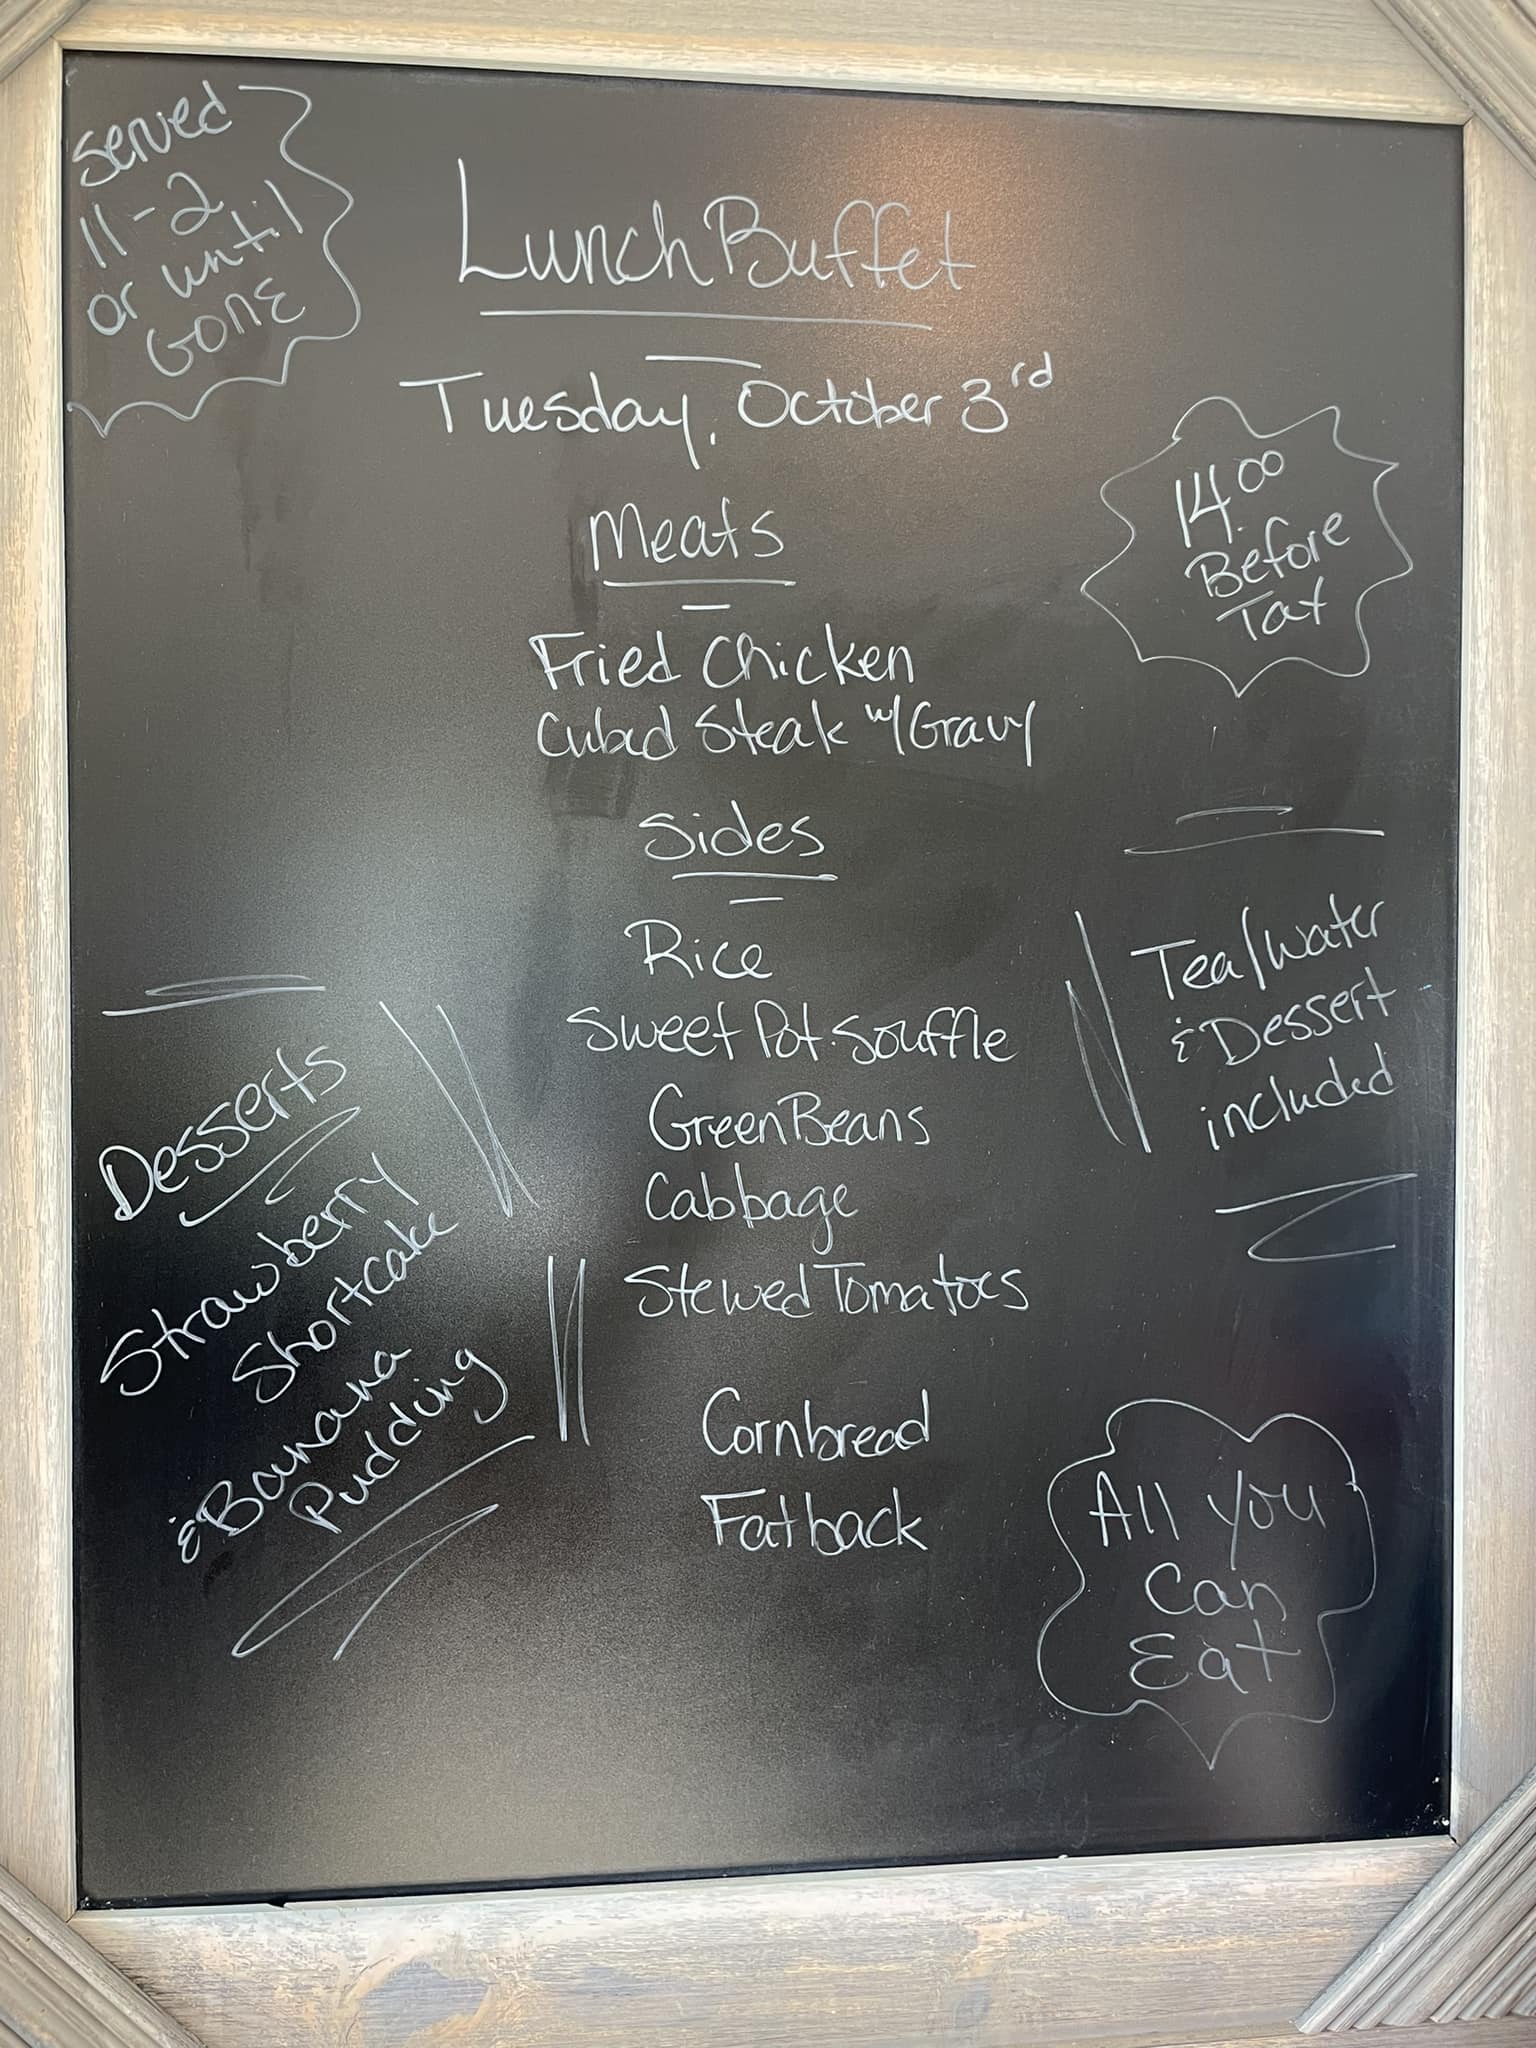 Served
11-2
or until
GONE
Lunch Buffet
Tuesday, October 3rd
14.00
Before
Tax
Meats
Fried Chicken
Cubed Steak w/Gravy
Sides
Rice
Sweet Pot. Souffle
Green Beans
Cabbage
Stewed Tomatoes
Cornbread
Fatback
Tea/Water
& Dessert
included
Desserts
Strawberry
Shortcake
& Banana
Pudding
All You
Can
Eat